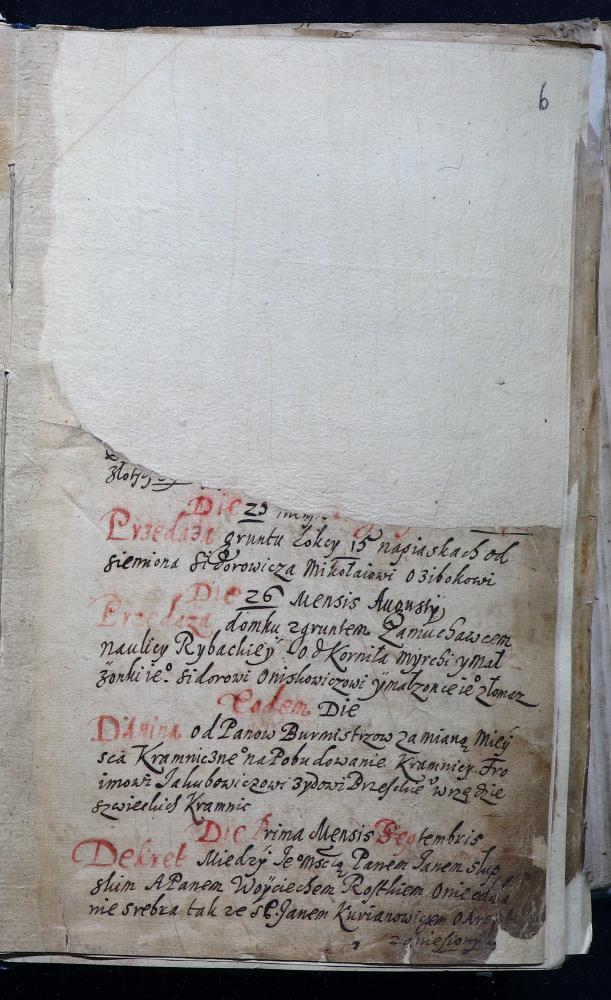 6
złotych
Die 23 mens
Przedaża gruntu Łokcy 15 napiaskach od
siemiona sidorowicza Mikołaiowi Ozibokowi
Die 26 Mensis Augusty
Przedaza domku zgruntem Zamuchawcem
naulicy Rybackiey od Korniła Myrchi y mał
żonki ie° sidorowi Oniskowiczowi y małzonce ie°
Eodem Die
Danina od Panow Burmistrzow zamianą Miey
sca Kramniczne° na Pobudowanie Kramnicy Fro
imowi Jakubowiczowi Zydowi Brzeskie° wrzędzie
szwieckich Kramnic
Die Prima Mensis Septembris
Dekret Między Ie°mścią Panem Janem słup
skim A Panem Woyciechem Rostkiem Onieodda
nie srebra tak ze s P. Janem Kurianowiczem O